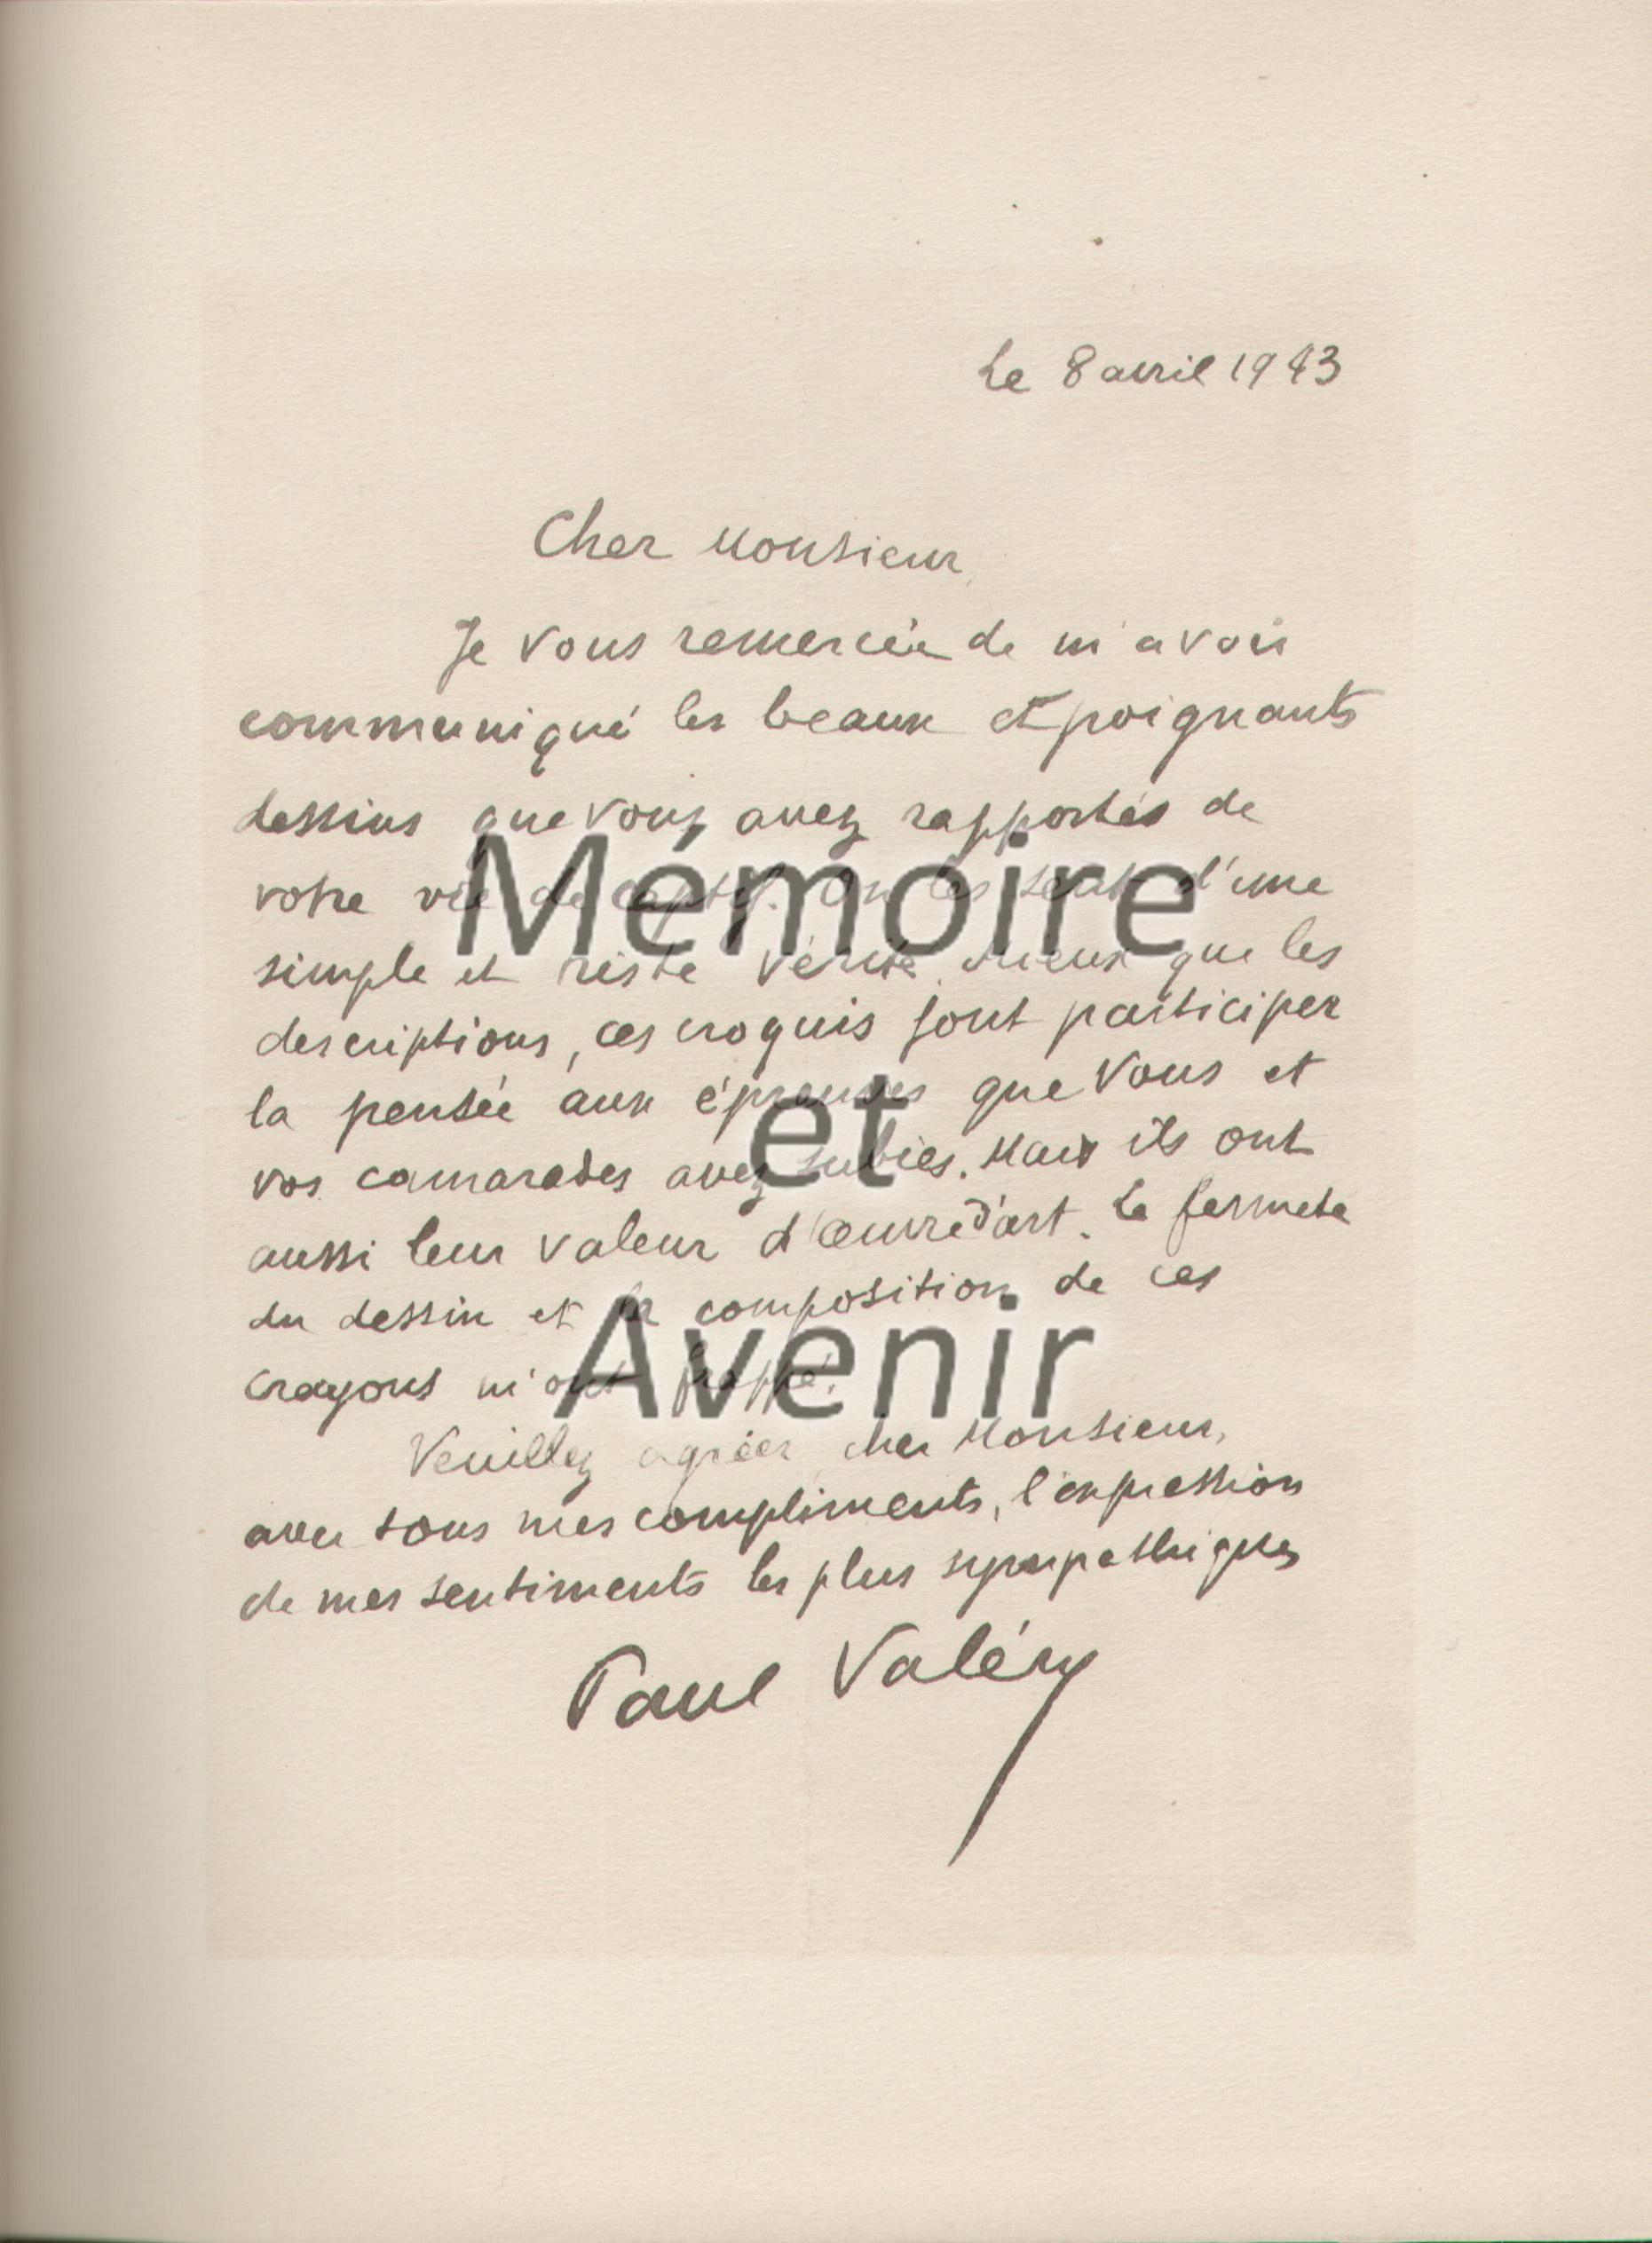 Le 8 avril 1943
Cher Monsieur,
Je vous remercie de m'avoir
communiqué les beaux et poignants
dessins que vous avez rapportés de
Mémoire
votre vie de captif. On les sent d'une
simple et triste vérité. Mieux que les
descriptions, ces croquis font participer
la pensée aux épreuves que vous et
et
vos camarades avez subies. Mais ils ont
aussi leur valeur d'œuvre d'art. La fermeté
du dessin et la composition de ces
Avenir
crayons m'ont frappé.
Veuillez agréer, cher Monsieur,
avec tous mes compliments, l'expression
de mes sentiments les plus sympathiques
Paul Valéry